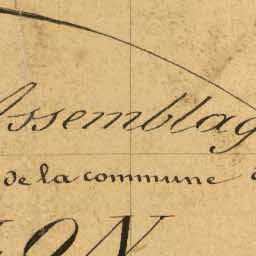 Assemblag
de la commune
ON